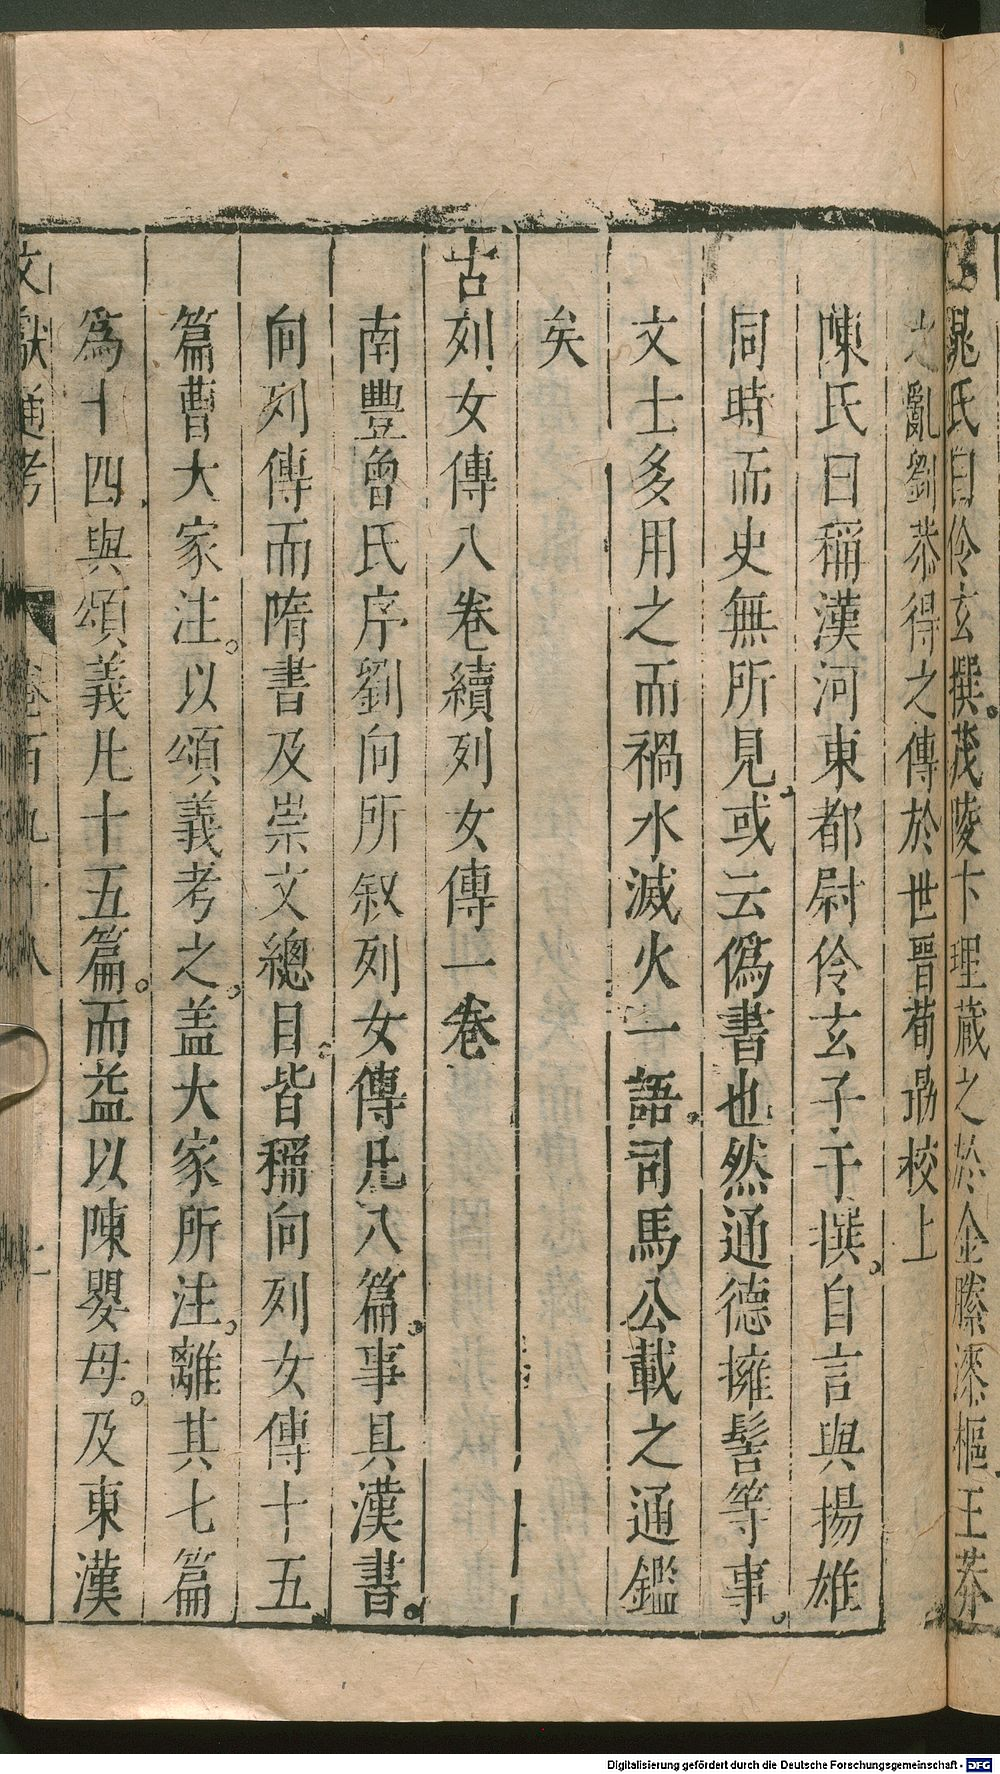 鼂氏曰伶玄撰茂陵卞理蔵之於金縢漆樞王莽
之亂劉恭得之傳於世晋荀勗校上
陳氏曰稱漢河東都尉伶玄子于撰自言與揚雄
同時而史無所見或云僞書也然通德擁髻等事
文士多用之而禍水滅火一語司馬公載之通鑑
矣
古列女傳八卷續列女傳一卷
南豐曾氏序劉向所叙列女傳凡八篇事具漢書
向列傳而隋書及崇文總目皆稱向列女傳十五
篇曹大家注以頌義考之盖大家所注離其七篇
爲十四與頌義凡十五篇而益以陳嬰母及東漢
文獻通考 卷百九十八 十
Digitalisierung gefördert durch die Deutsche Forschungsgemeinschaft - DFG